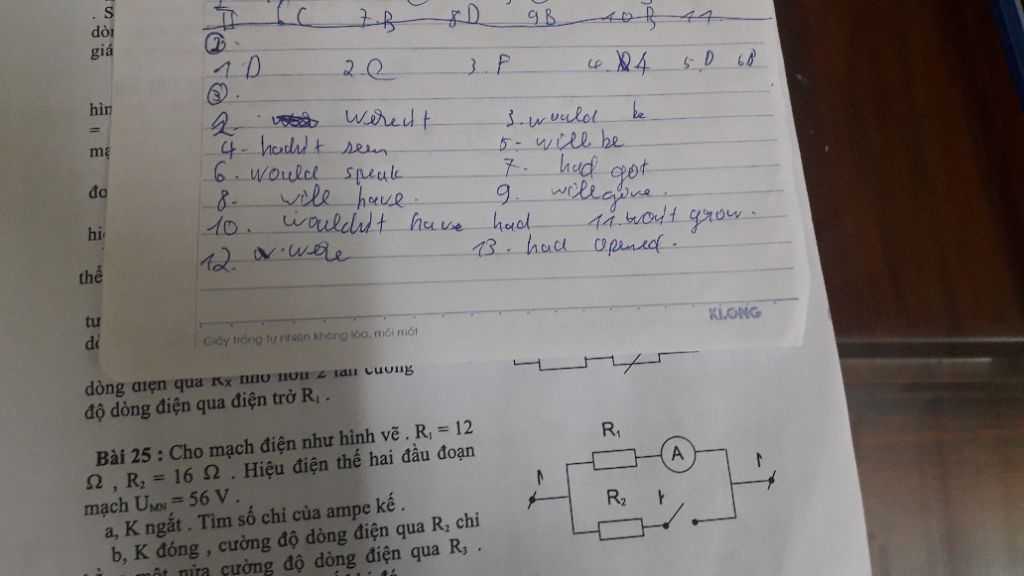 II 6 C 7 B 8 D 9 B 10 B 11
②
1 D 2 C 3. F 4. 5. D 6 B
③
2 weren't 3. would be
4 - hadn't seen 5 - will be
6. would speak 7. had got
8 - will have. 9. will give.
10. wouldn't have had 11. won't grow.
12. were 13. had opened.
KLONG
Giấy trắng tự nhiên không lóa, mỏi mắt
. S
dòn
giá
hìn
=
mạ
đo
hiệ
thể
tư
dòng điện qua Rx nhỏ hơn 2 lần cường
độ dòng điện qua điện trở R₁ .
Bài 25 : Cho mạch điện như hình vẽ . R₁ = 12
Ω , R₂ = 16 Ω . Hiệu điện thế hai đầu đoạn
mạch UMN = 56 V .
a, K ngắt . Tìm số chỉ của ampe kế .
b, K đóng , cường độ dòng điện qua R₂ chỉ
một nửa cường độ dòng điện qua R₃ .
R₁
A
R₂